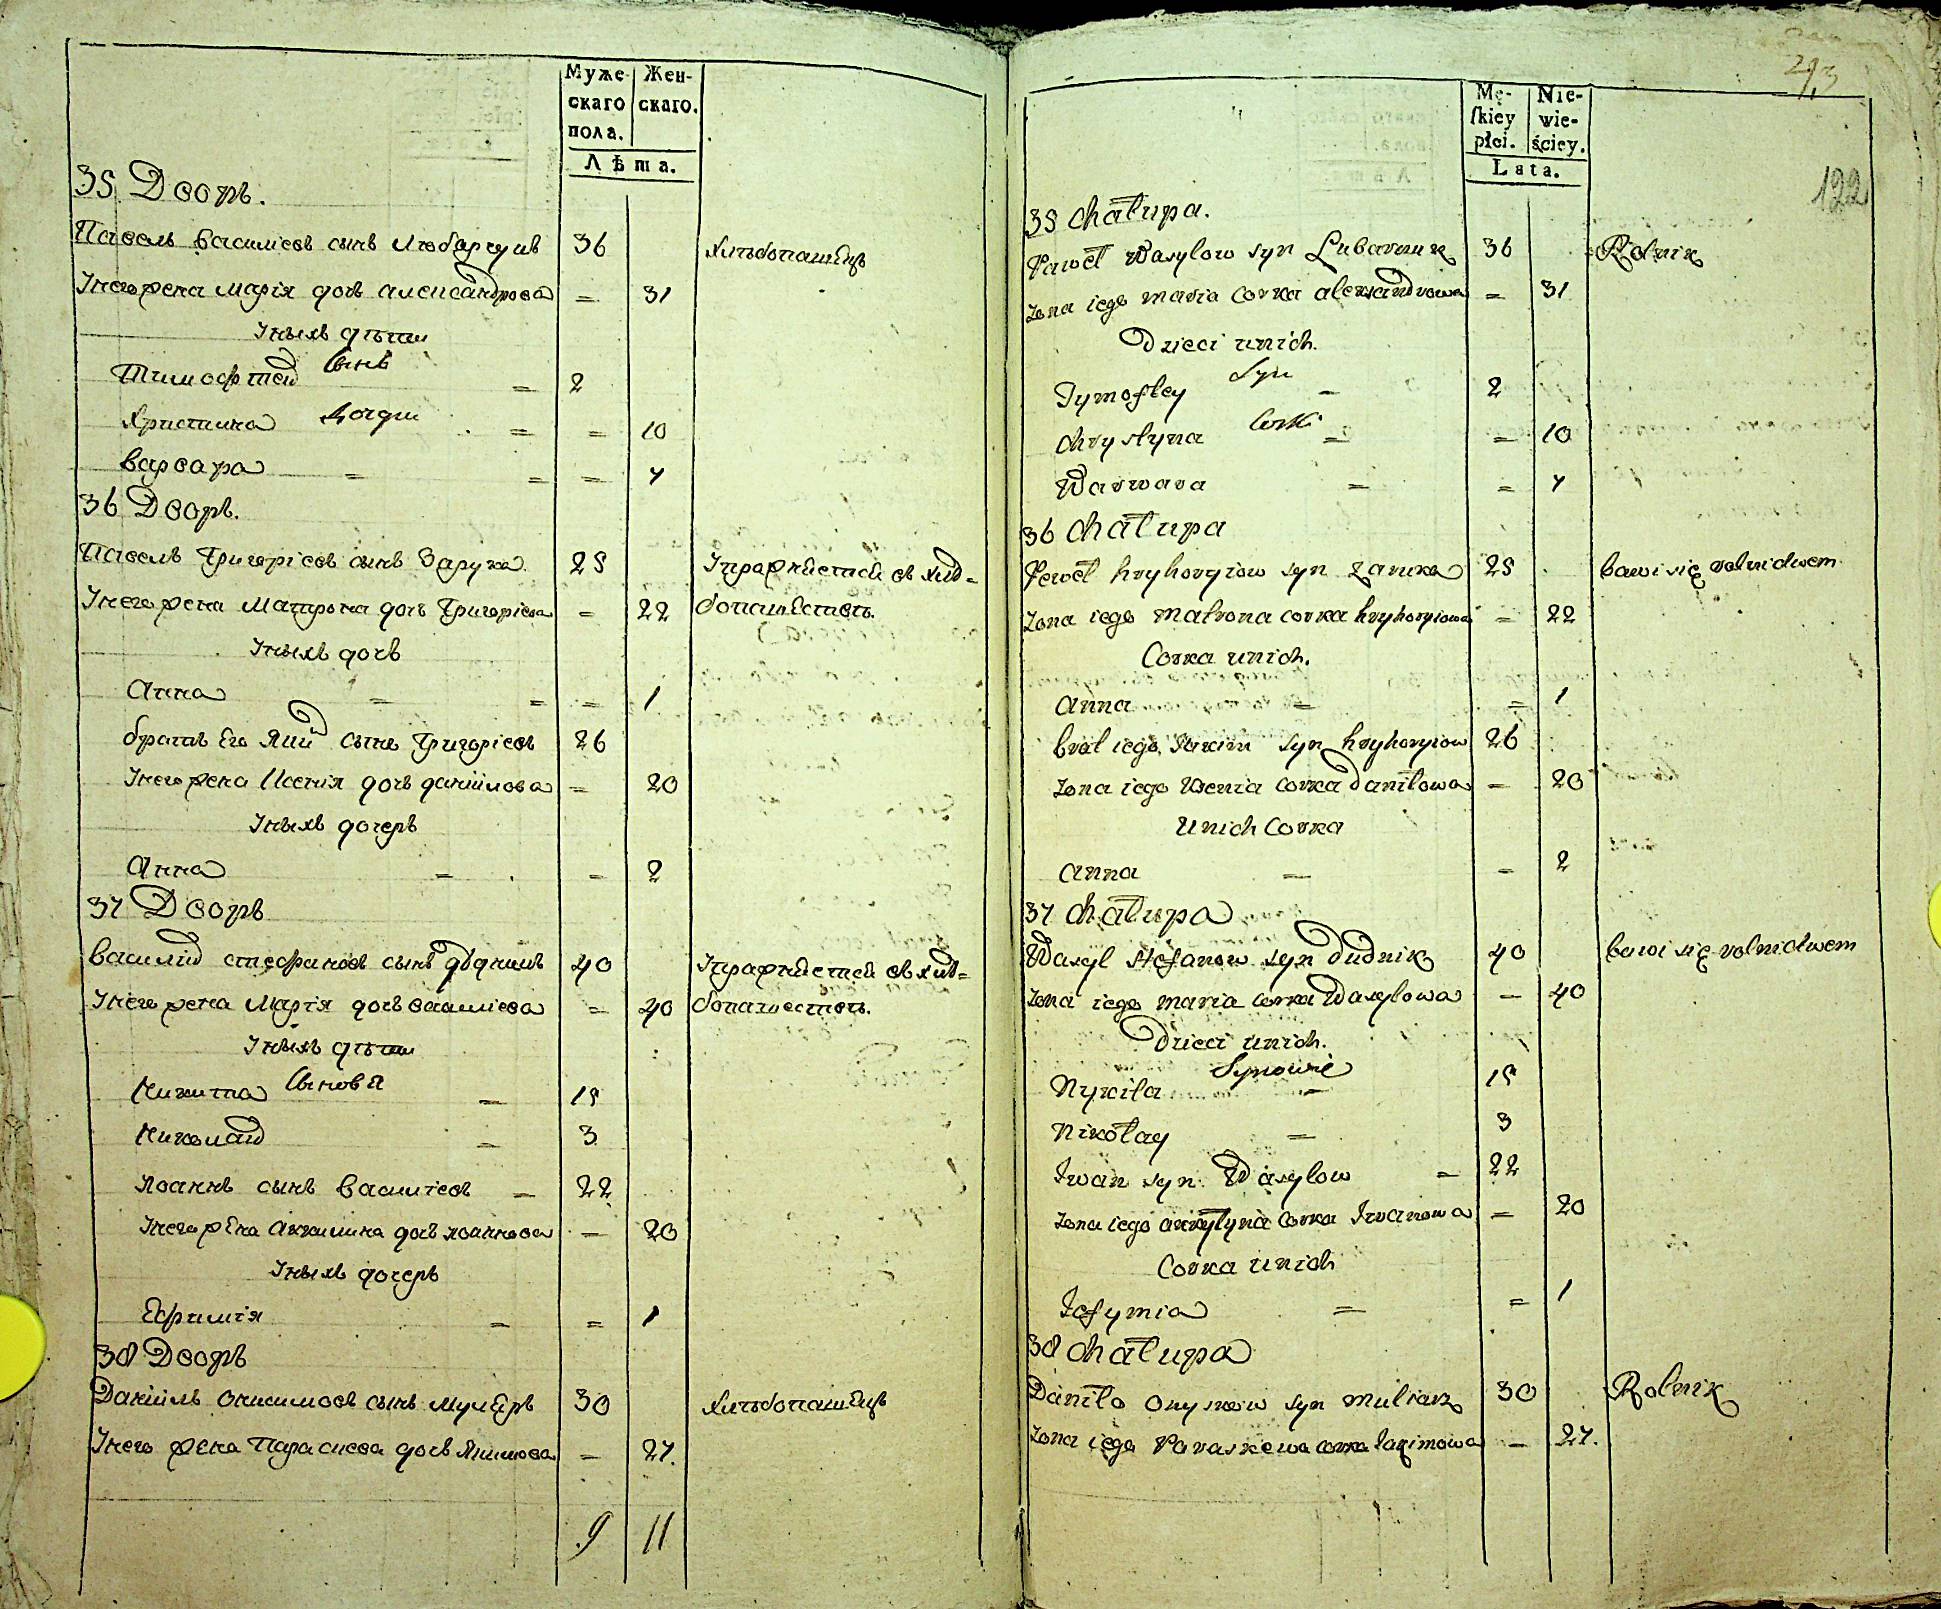 Муже-
скаго
пола.
Жен-
скаго.
Лѣта.
35 Дворъ.
Павелъ Василіевъ сынъ Любарчукъ 36 Хлѣбопашецъ
Інегожена Марія дочь Александрова = 31
Інихъ дѣти
Сынъ
Тимофтей = 2
Дочери
Христина = = 10
Варвара = = = 7
36 Дворъ.
Павелъ Григоріевъ сынъ Зарука 25 Упражняется въ хлѣ=
Інегожена Матрона дочь Григоріева = 22 бопашествѣ.
Інихъ дочь
Анна = = = 1
братъ Его Яким сынъ Григоріевъ 26
Інегожена Ксенія дочь Данііилова = 20
Інихъ дочерь
Анна = = 2
37 Дворъ
Василий Стефановъ сынъ Дудникъ 40 Упражняется въ хлѣ=
Інегожена Марія дочь Василіева = 40 бопашествѣ.
Інихъ дѣти
Сыновя
Никита = 15
Николай = 3
Іоаннъ сынъ Василіевъ = 22
Інегожена Акилина дочь Іоаннова = 20
Інихъ дочерь
Ефимія = = 1
38 Дворъ
Даніилъ Онисимовъ сынъ 30 Хлѣбопашецъ
Інего жена Параскева дочь Якимова = 27.
9 11
293
122
Mę-
skiey
płci.
Nie-
wie-
ściey.
Lata.
35 Chałupa.
Paweł Wasylow syn Lubarczuk 36 Rolnik
Zona iego Maria Corka Alexandrowa = 31
Dzieci unich.
Syn
Tymoftey = 2
Corki
Chrystyna = = 10
Warwara = = 7
36 Chałupa
Paweł hryhoryiow syn Zaruka 25 bawi się rolnictwem
Zona iego Matrona corka hryhoryiowa = 22
Corka unich.
Anna = = 1
brat iego Jakim syn hryhoryiow 26
Zona iego Xenia corka Daniłowa = 20
Unich Corka
Anna = = 2
37 Chałupa
Wasyl Stefanow syn Dudnik 40 bawi się rolnictwem
Zona iego Maria corka Wasylowa = 40
Dzieci unich.
Synowie
Nykita = 15
Nikołay = 3
Iwan syn Wasylow = 22
Zona iego Akkylyna Corka Iwanowa = 20
Corka unich
Jefymia = = 1
38 Chałupa
Daniło syn 30 Rolnik
Zona iego Paraskewa corka Jakimowa = 27.